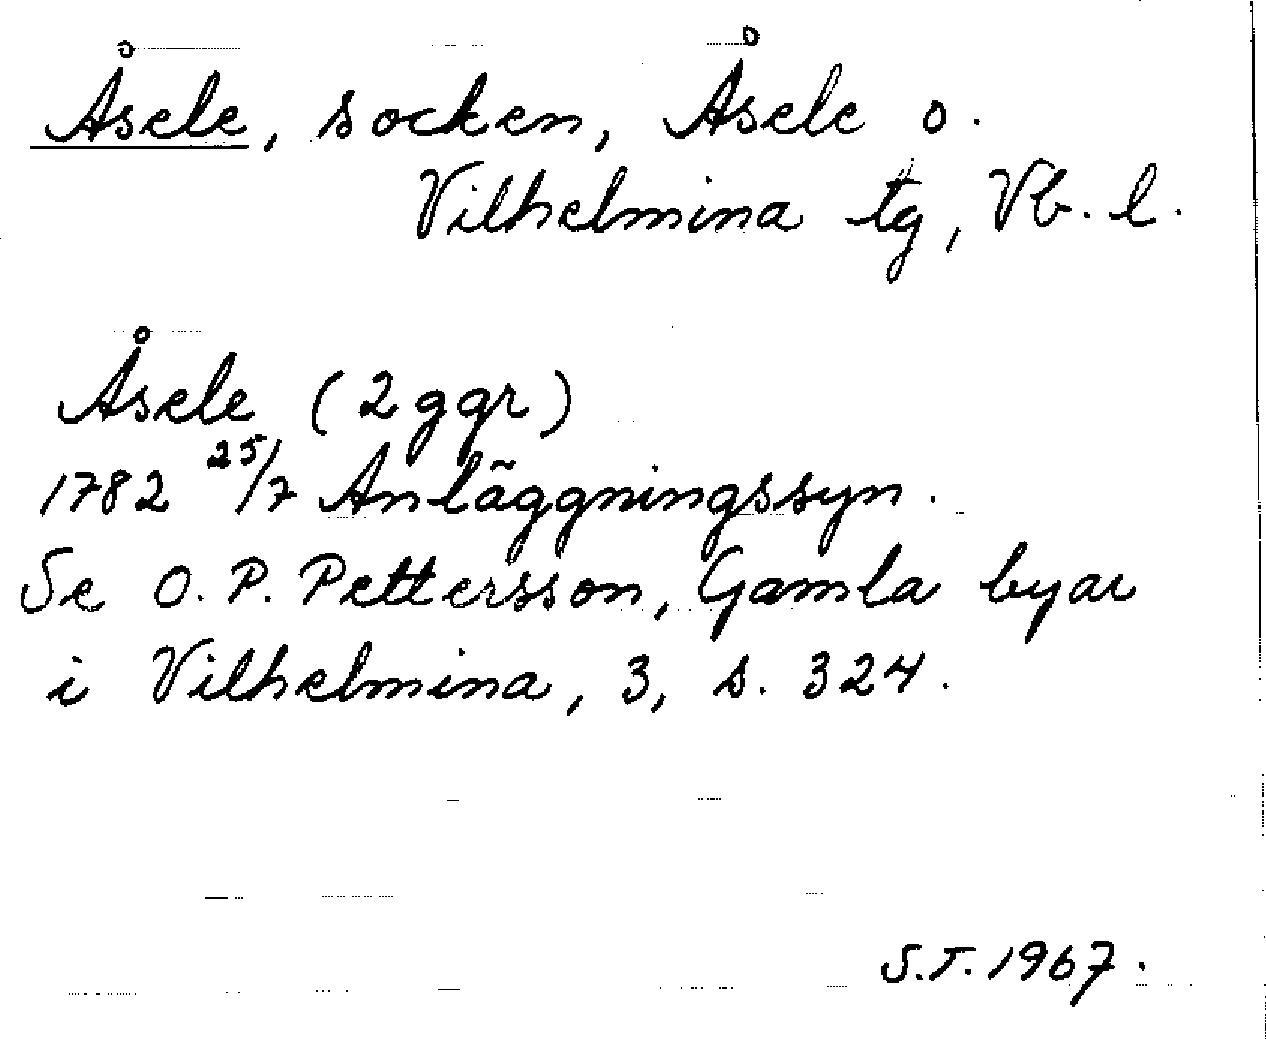 Åsele, socken, Åsele o.
Vilhelmina tg, Vb. l.
Åsele (2 ggr)
1782 25/7 Anläggningssyn.
Se O. P. Pettersson, Gamla byar
i Vilhelmina, 3, s. 324.
S.T. 1967.